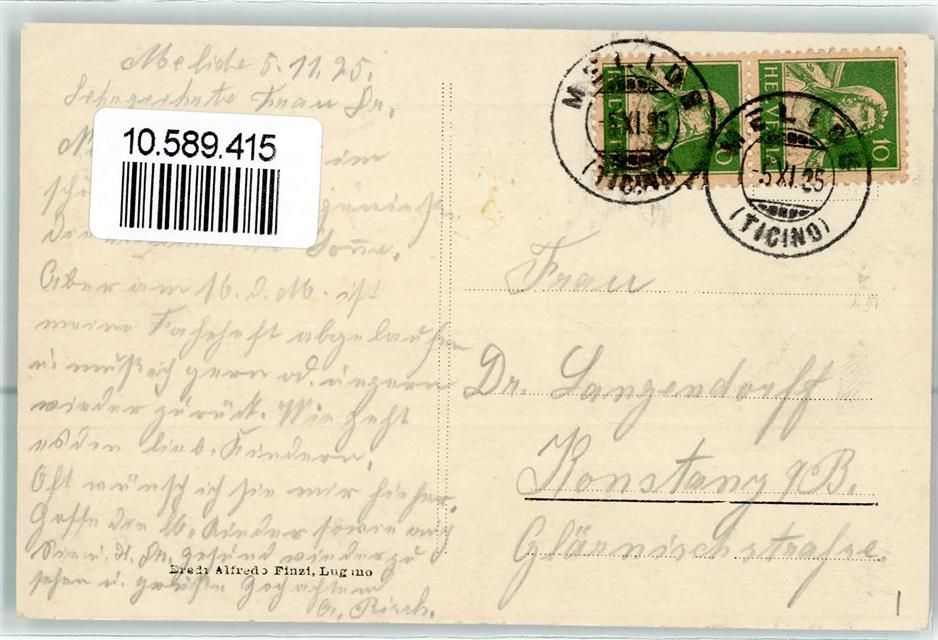 Melide 5.11.25.
Sehrgeehrte Frau Dr.
10.589.415
im
Sonne.
Aber am 16. d. M. ist
meine Fahrheft abgelaufen
u. muß ich gern od. ungern
wieder zurück. Wie geht
es den lieb. Kindern.
Oft wünsch ich sie mir hieher.
Hoffe den lb. Kinder sowie auch
Sie u. H. Dr. gesund wieder zu
sehen u. grüße Hochachtend
Eredi Alfredo Finzi, Lugano
MELIDE
5.XI.25
(TICINO)
HELVETIA
10
MELIDE
5.XI.25
(TICINO)
HELVETIA
10
Frau
Dr. Langendorff
Konstanz a/B.
Glärnischstraße.
1